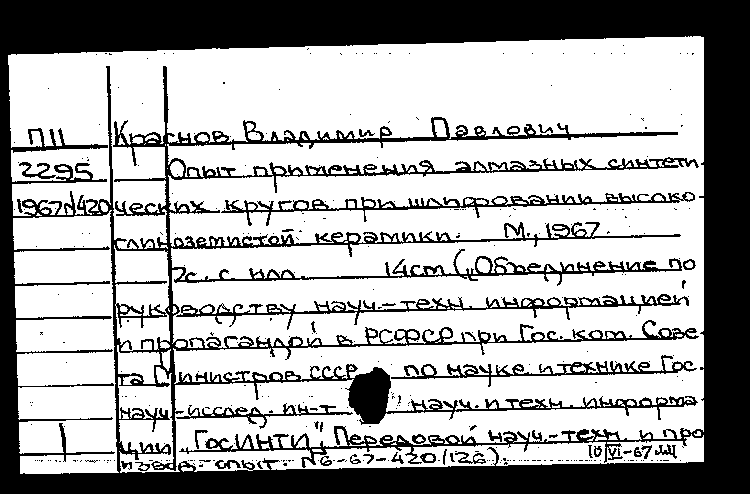 П11 Краснов, Владимир Павлович
2295 Опыт применения алмазных синтети-
1967№420 ческих кругов при шлифовании высоко-
глиноземистой керамики. М., 1967.
2с. с илл. 14см („Объединение по
руководству науч.-техн. информацией
и пропагандой в РСФСР при Гос. ком. Сове-
та Министров СССР по науке и технике Гос.
науч-исслед. ин-т науч. и техн. информа-
1 ции „ГОСИНТИ", Передовой науч.-техн. и про
изводс. опыт. №6-67-420/126). 10 VI-67